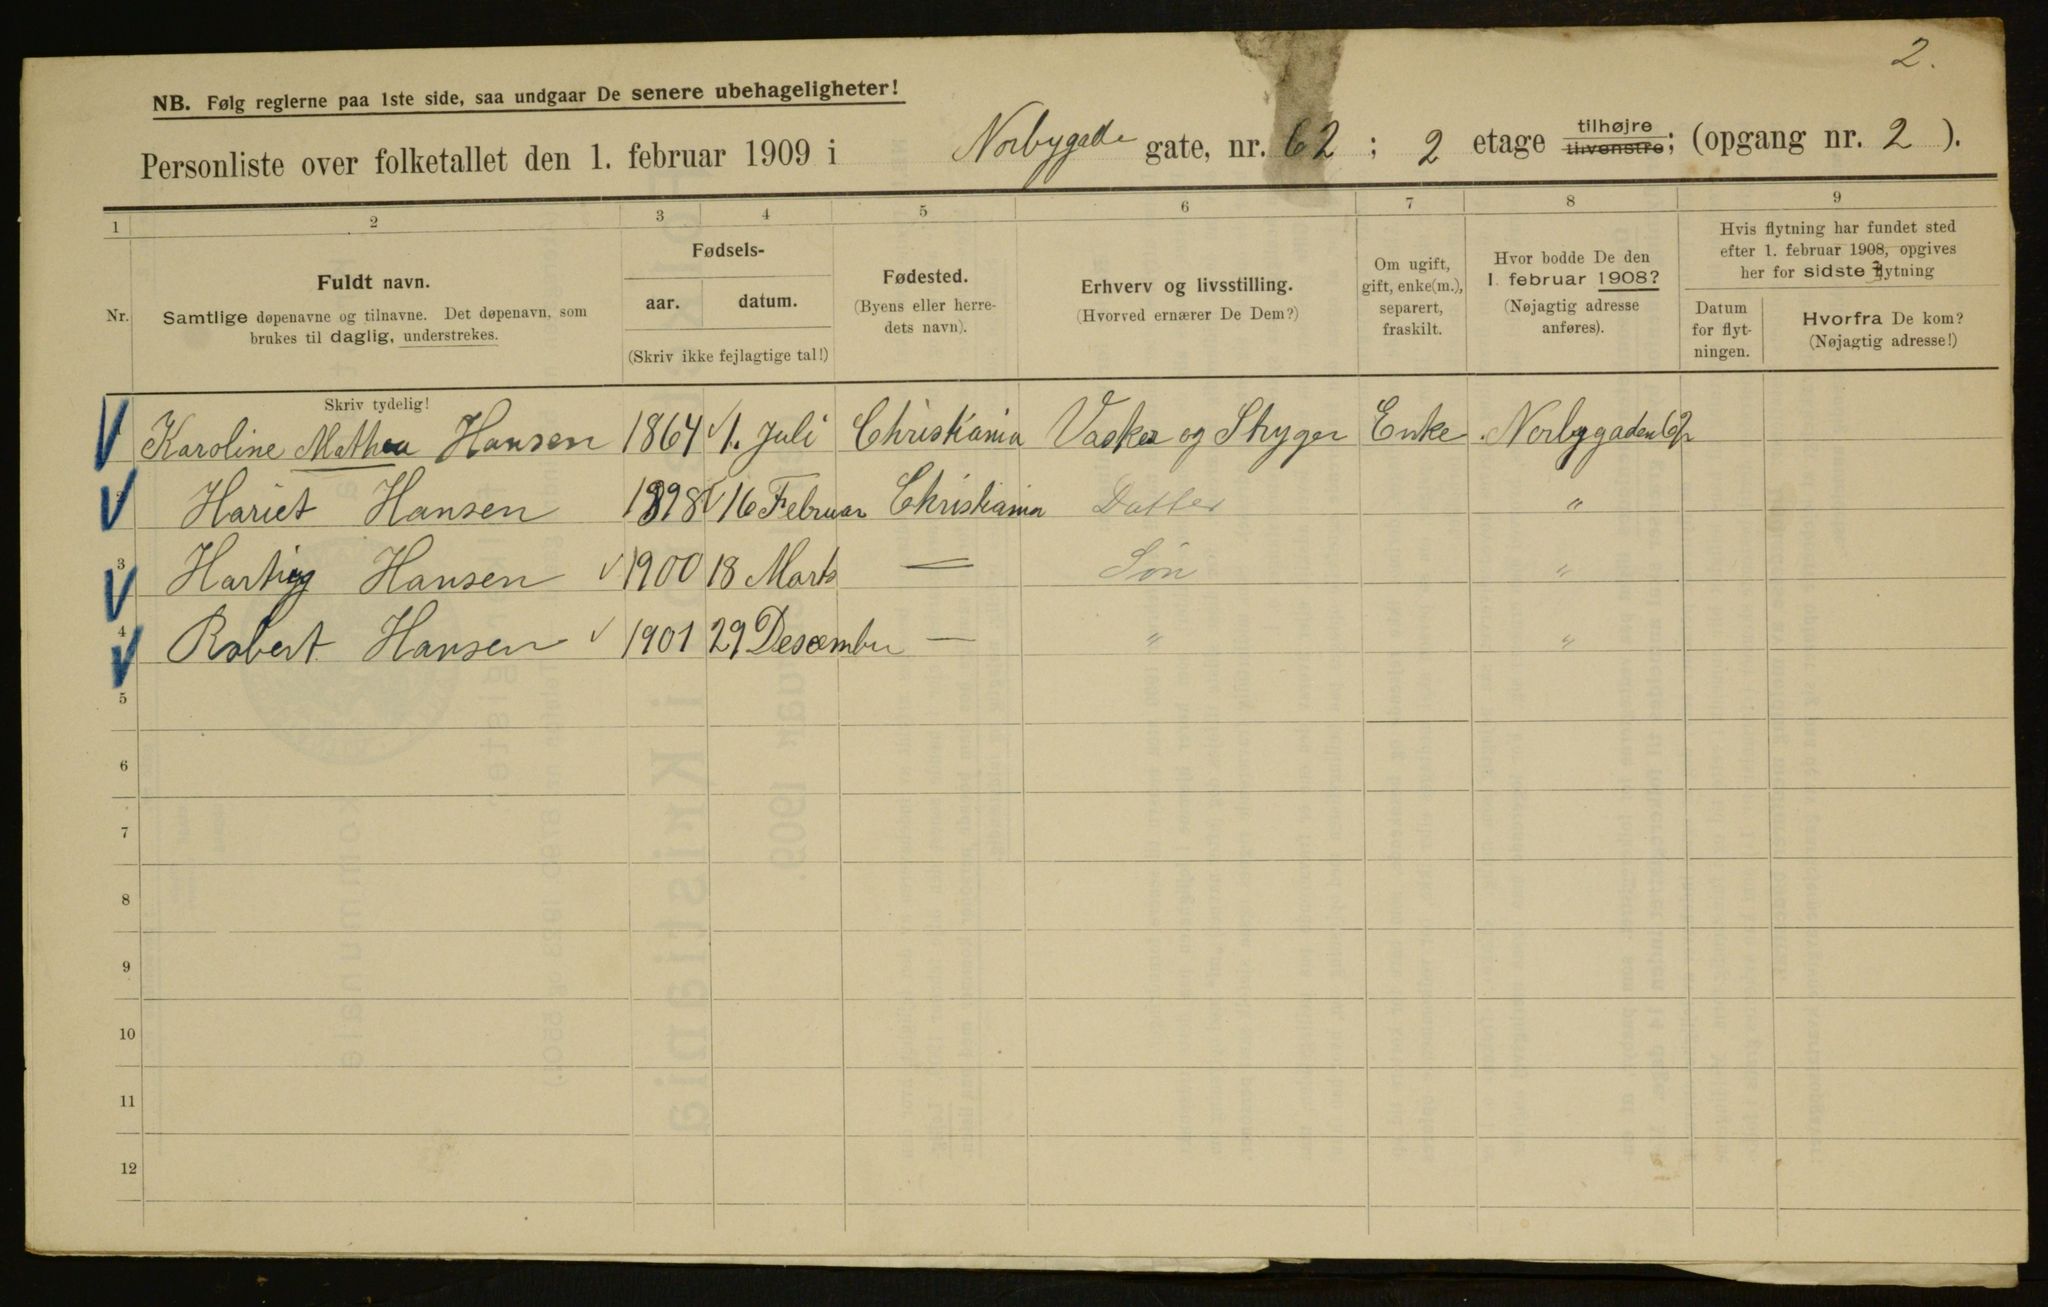 2.
NB. Følg reglerne paa 1ste side, saa undgaar De senere ubehageligheter!
Personliste over folketallet den 1. februar 1909 i Norbygade gate, nr. 62 ; 2 etage tilhøjre tilvenstre; (opgang nr. 2 ).
1 2 3 4 5 6 7 8 9
Nr.
Fuldt navn.
Samtlige døpenavne og tilnavne. Det døpenavn, som
brukes til daglig, understrekes.
Fødsels-
aar. datum.
(Skriv ikke fejlagtige tal!)
Fødested.
(Byens eller herre-
dets navn).
Erhverv og livsstilling.
(Hvorved ernærer De Dem?)
Om ugift,
gift, enke(m.),
separert,
fraskilt.
Hvor bodde De den
1. februar 1908?
(Nøjagtig adresse
anføres).
Hvis flytning har fundet sted
efter 1. februar 1908, opgives
her for sidste flytning
Datum
for flyt-
ningen.
Hvorfra De kom?
(Nøjagtig adresse!)
Skriv tydelig!
Karoline Mathea Hansen 1864 1. Juli Christiania Vasker og Stryger Enke Norbygaden 62
Hariet Hansen 1898 16 Februar Christiania Datter "
3 Hartvig Hansen 1900 18 Marts — Søn "
4 Robert Hansen 1901 29 Desember — " "
5
6
7
8
9
10
11
12